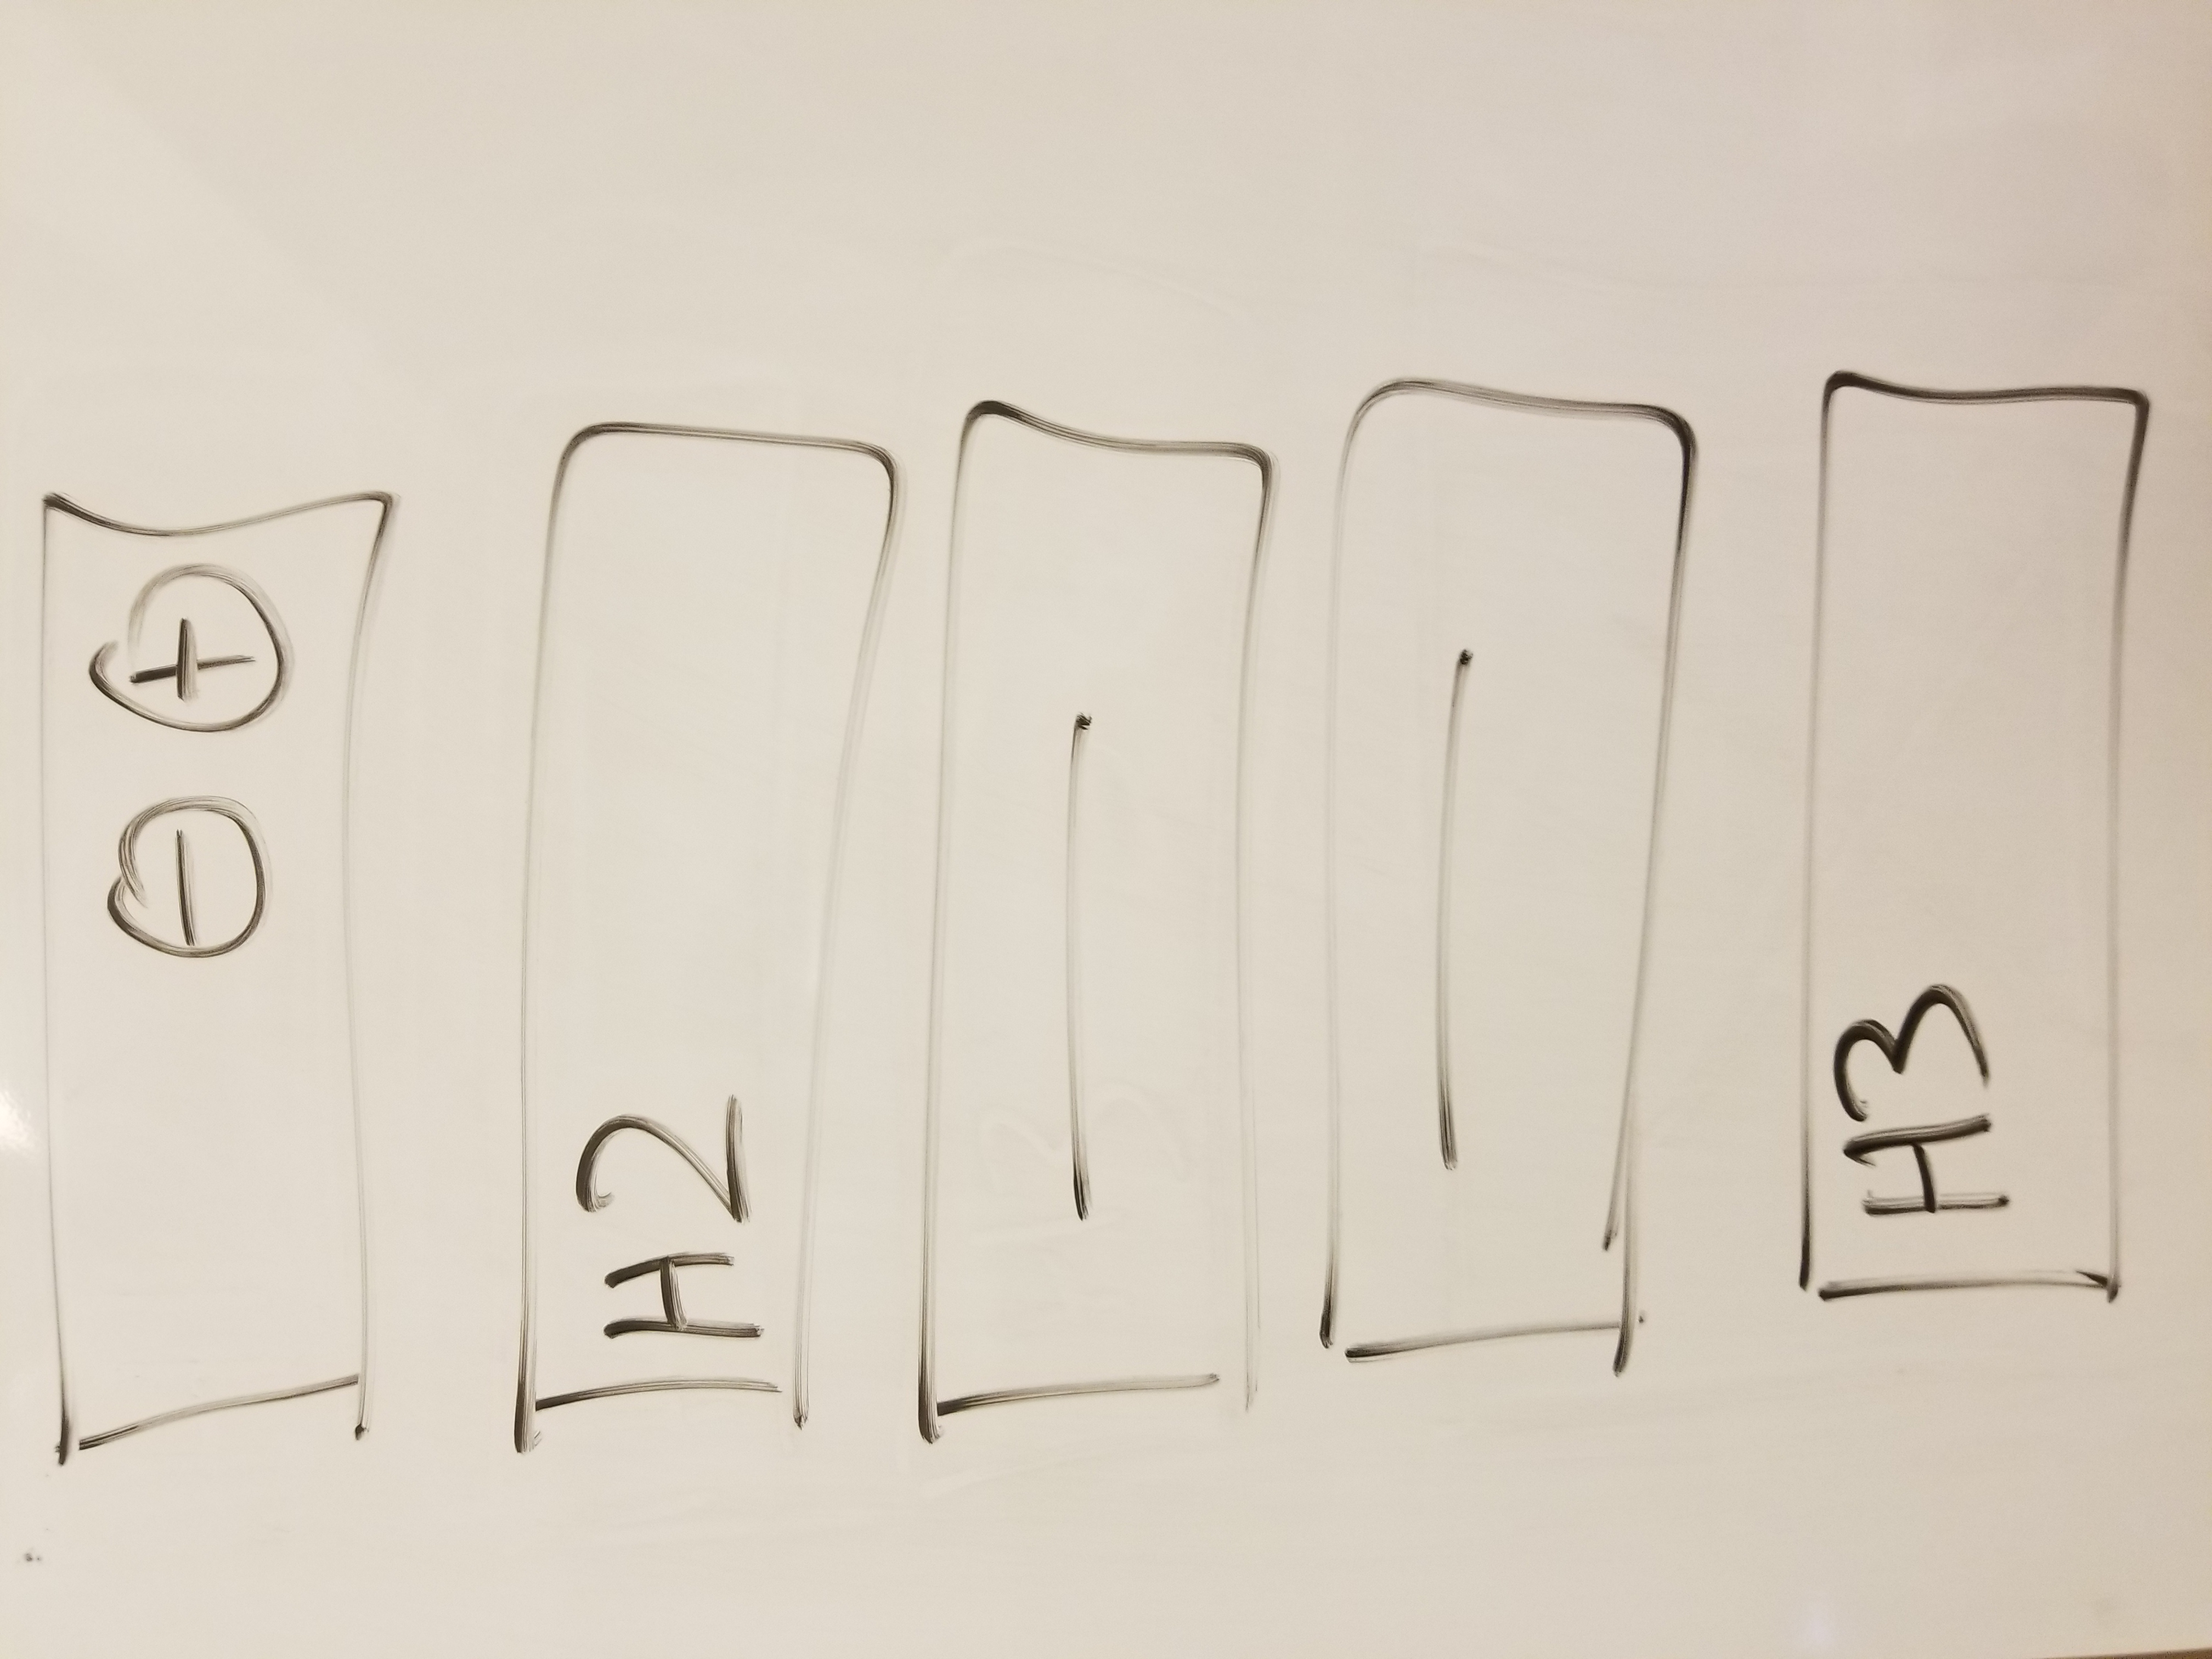 - +
H2
H3